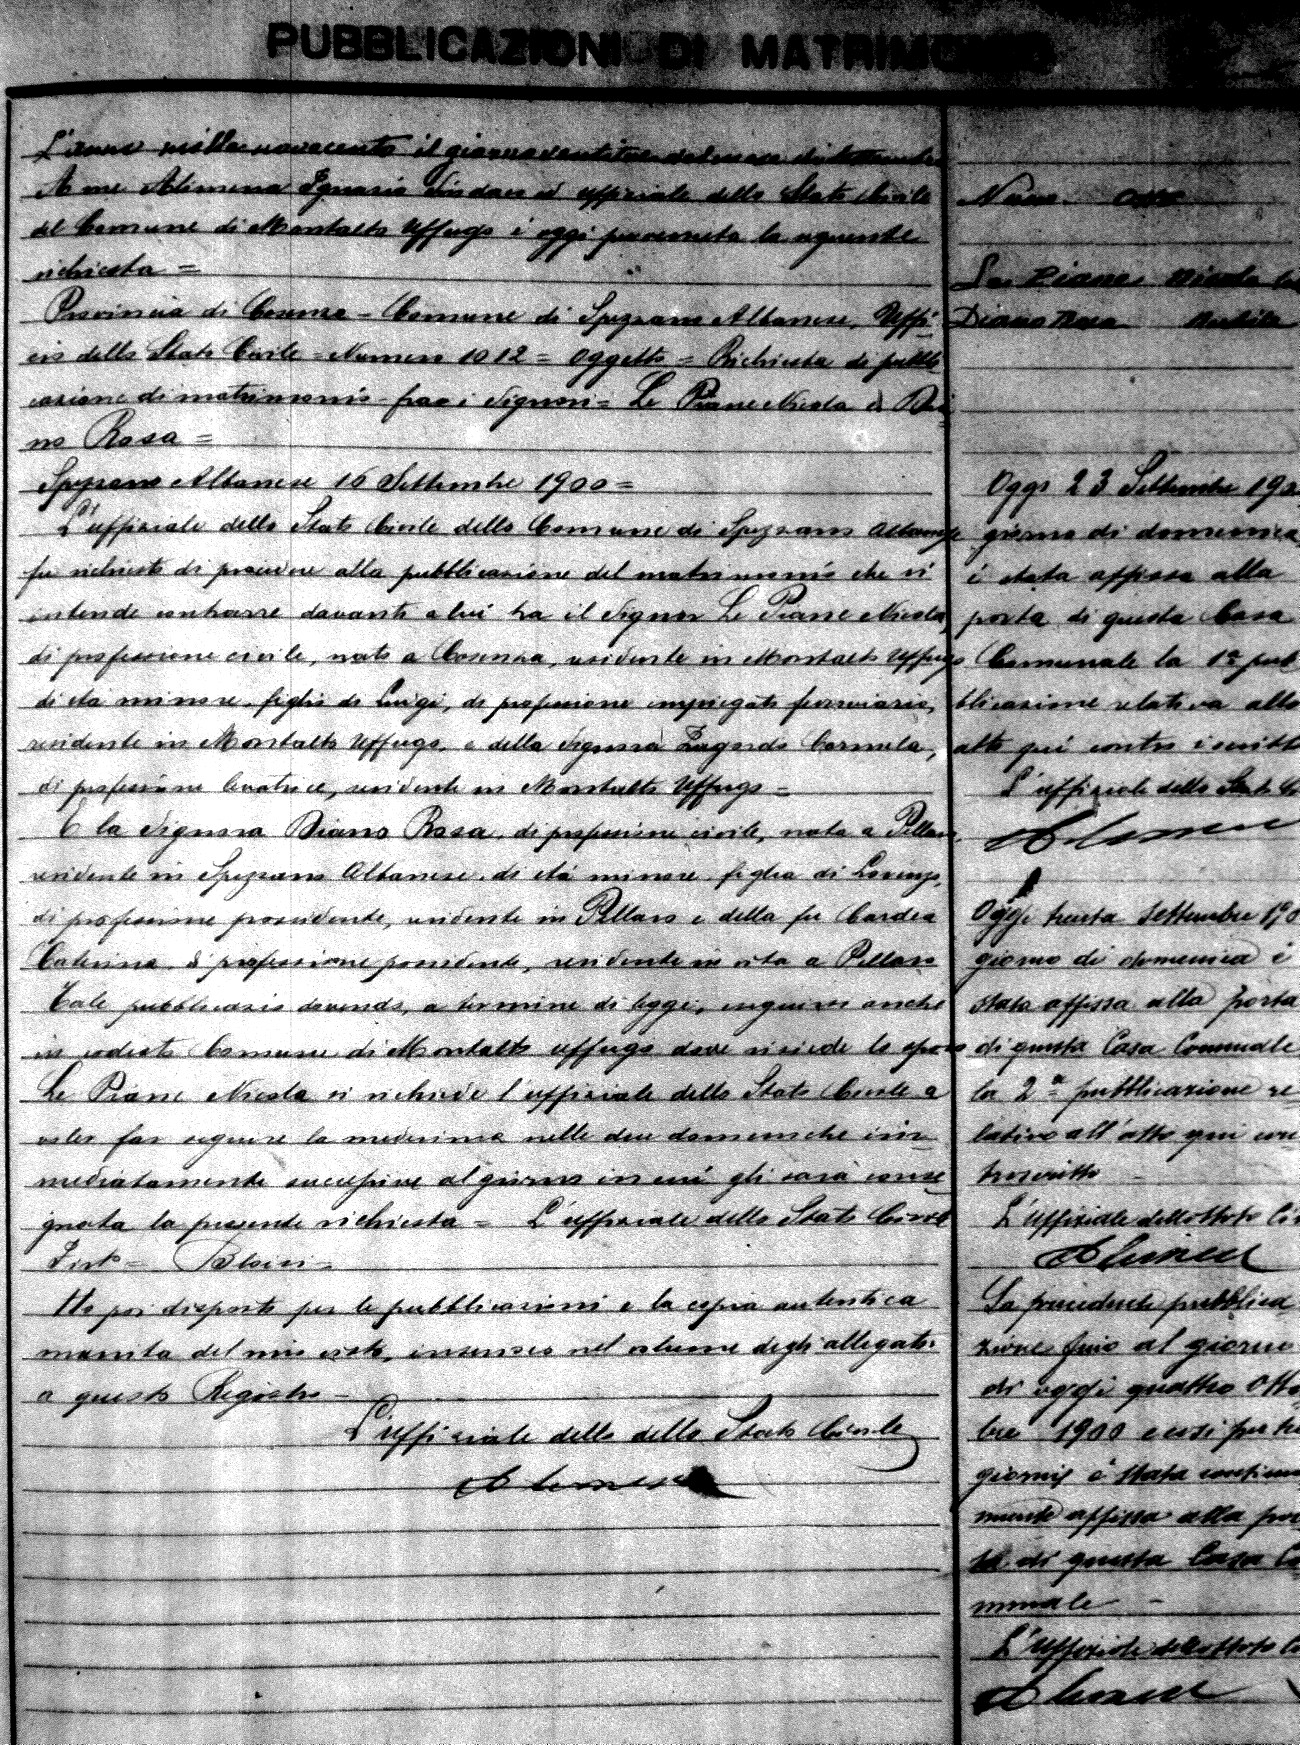 PUBBLICAZIONI DI MATRIMONIO
L'anno mille novecento il giorno ventitre del mese di Settembre
A me Alimena Ignazio Sindaco ed uffiziale dello Stato Civile
del Comune di Montalto Uffugo è oggi pervenuta la seguente
richiesta =
Provincia di Cosenza - Comune di Spezzano Albanese, Uffi
cio dello Stato Civile = Numero 1012 = Oggetto = Richiesta di pubbli
cazione di matrimonio fra i Signori = Le Piane Nicola e Dia
no Rosa =
Spezzano Albanese 16 Settembre 1900 =
L'uffiziale dello Stato Civile dello Comune di Spezzano Albanese
fu richiesto di procedere alla pubblicazione del matrimonio che si
intende contrarre davanti a lui tra il Signor Le Piane Nicola,
di professione civile, nato a Cosenza, residente in Montalto Uffugo
di età minore, figlio di Luigi, di professione impiegato ferroviario,
residente in Montalto Uffugo, e della Signora Carmela,
di professione residente in Montalto Uffugo =
E la Signora Diano Rosa, di professione civile, nata a Pellaro,
residente in Spezzano Albanese, di età minore figlia di Lorenzo,
di professione possidente, residente in Pellaro e della fu Cardea
Caterina, di professione possidente, residente in vita a Pellaro
Tale pubblicazio dovendo, a termine di legge, eseguirsi anche
in codesto Comune di Montalto Uffugo dove risiede lo sposo
Le Piane Nicola si richiede l'uffiziale dello Stato Civile a
voler far seguire la medesima nelle due domeniche im
mediatamente successive al giorno in cui gli sarà conse
gnata la presente richiesta = L'uffiziale dello Stato Civile
Firto =
Ho poi disposto per le pubblicazioni e la copia autentica
munita del mio visto, inserisco nel volume degli allegati
a questo Registro -
L'uffiziale dello dello Stato Civile
Alimena
Num. otto
Le Piane Nicola
Diano Rosa
Oggi 23 Settembre 190
giorno di domenica
è stata affissa alla
porta di questa Casa
Comunale la 1a pub
blicazione relativa allo
atto qui contro iscritto
L'uffiziale dello Stato Ci
Alimena
Oggi trenta settembre 190
giorno di domenica è
stata affissa alla porta
di questa Casa Comunale
la 2a pubblicazione re
lativo all'atto qui con
troscritto -
L'Uffiziale dello Stato Ci
Alimena
La precedente pubblica
zione fino al giorno
di oggi quattro otto
bre 1900 e così per tre
giorni è stata continua
mente affissa alla por
ta di questa Casa Co
munale -
L'Uffiziale dello Stato Ci
Alimena